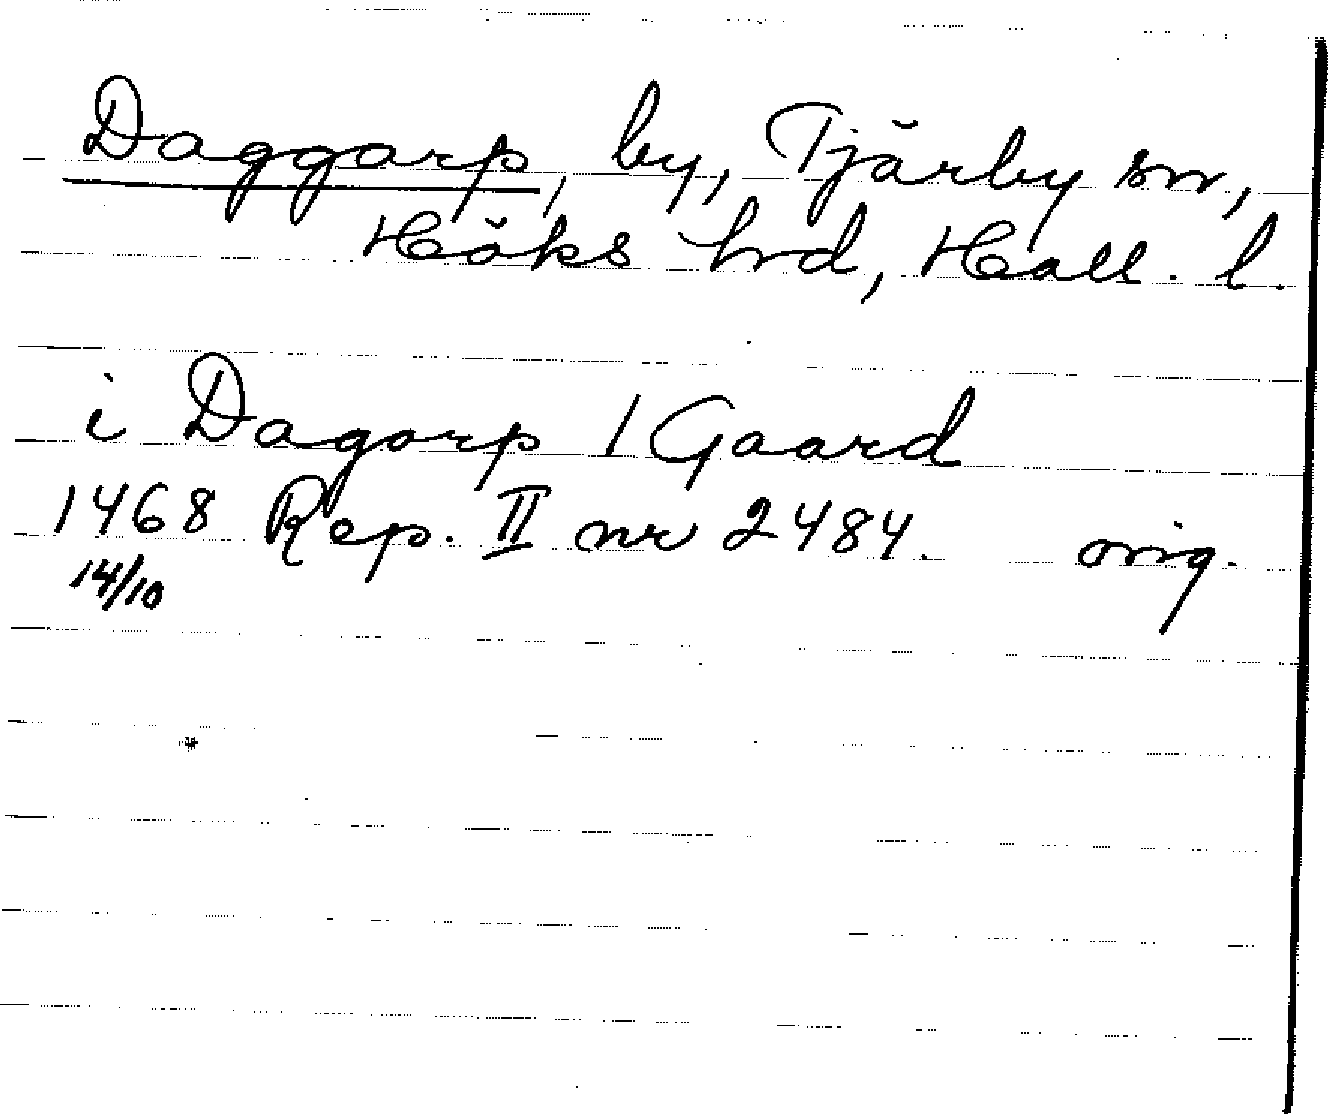 Daggarp, by, Tjärby sn,
Höks hrd, Hall. l.
i Dagorp 1 Gaard
1468 Rep. II nr 2484. orig.
14/10